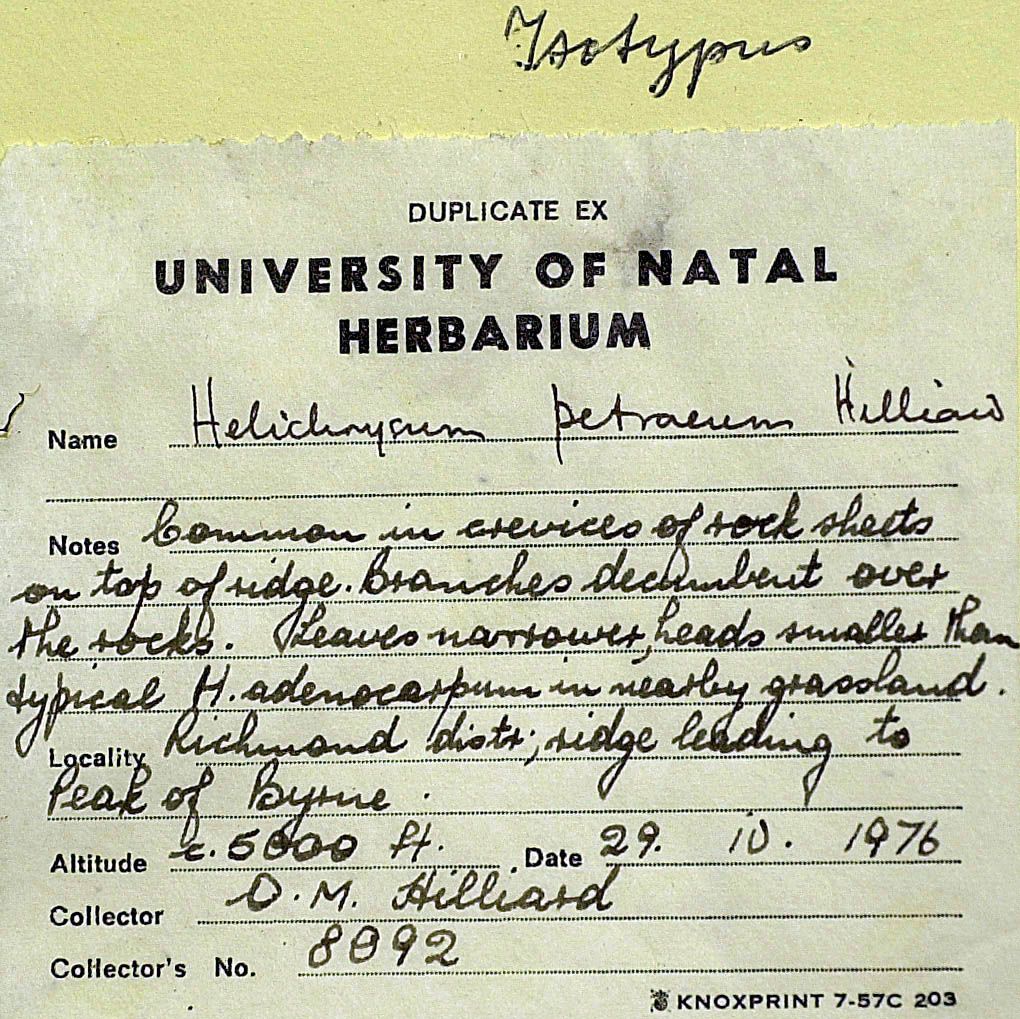 Isotypus
DUPLICATE EX
UNIVERSITY OF NATAL
HERBARIUM
Name Helichrysum petraeum Hilliard
Notes Common in crevices of rock sheets
on top of ridge. Branches decumbent over
the rocks. Leaves narrower, heads smaller than
typical H. adenocarpum in nearby grassland.
Locality Richmond distr; ridge leading to
Peak of Byrne.
Altitude c. 5000 ft. Date 29. 10. 1976
Collector O. M. Hilliard
Collector's No. 8092
KNOXPRINT 7-57C 203